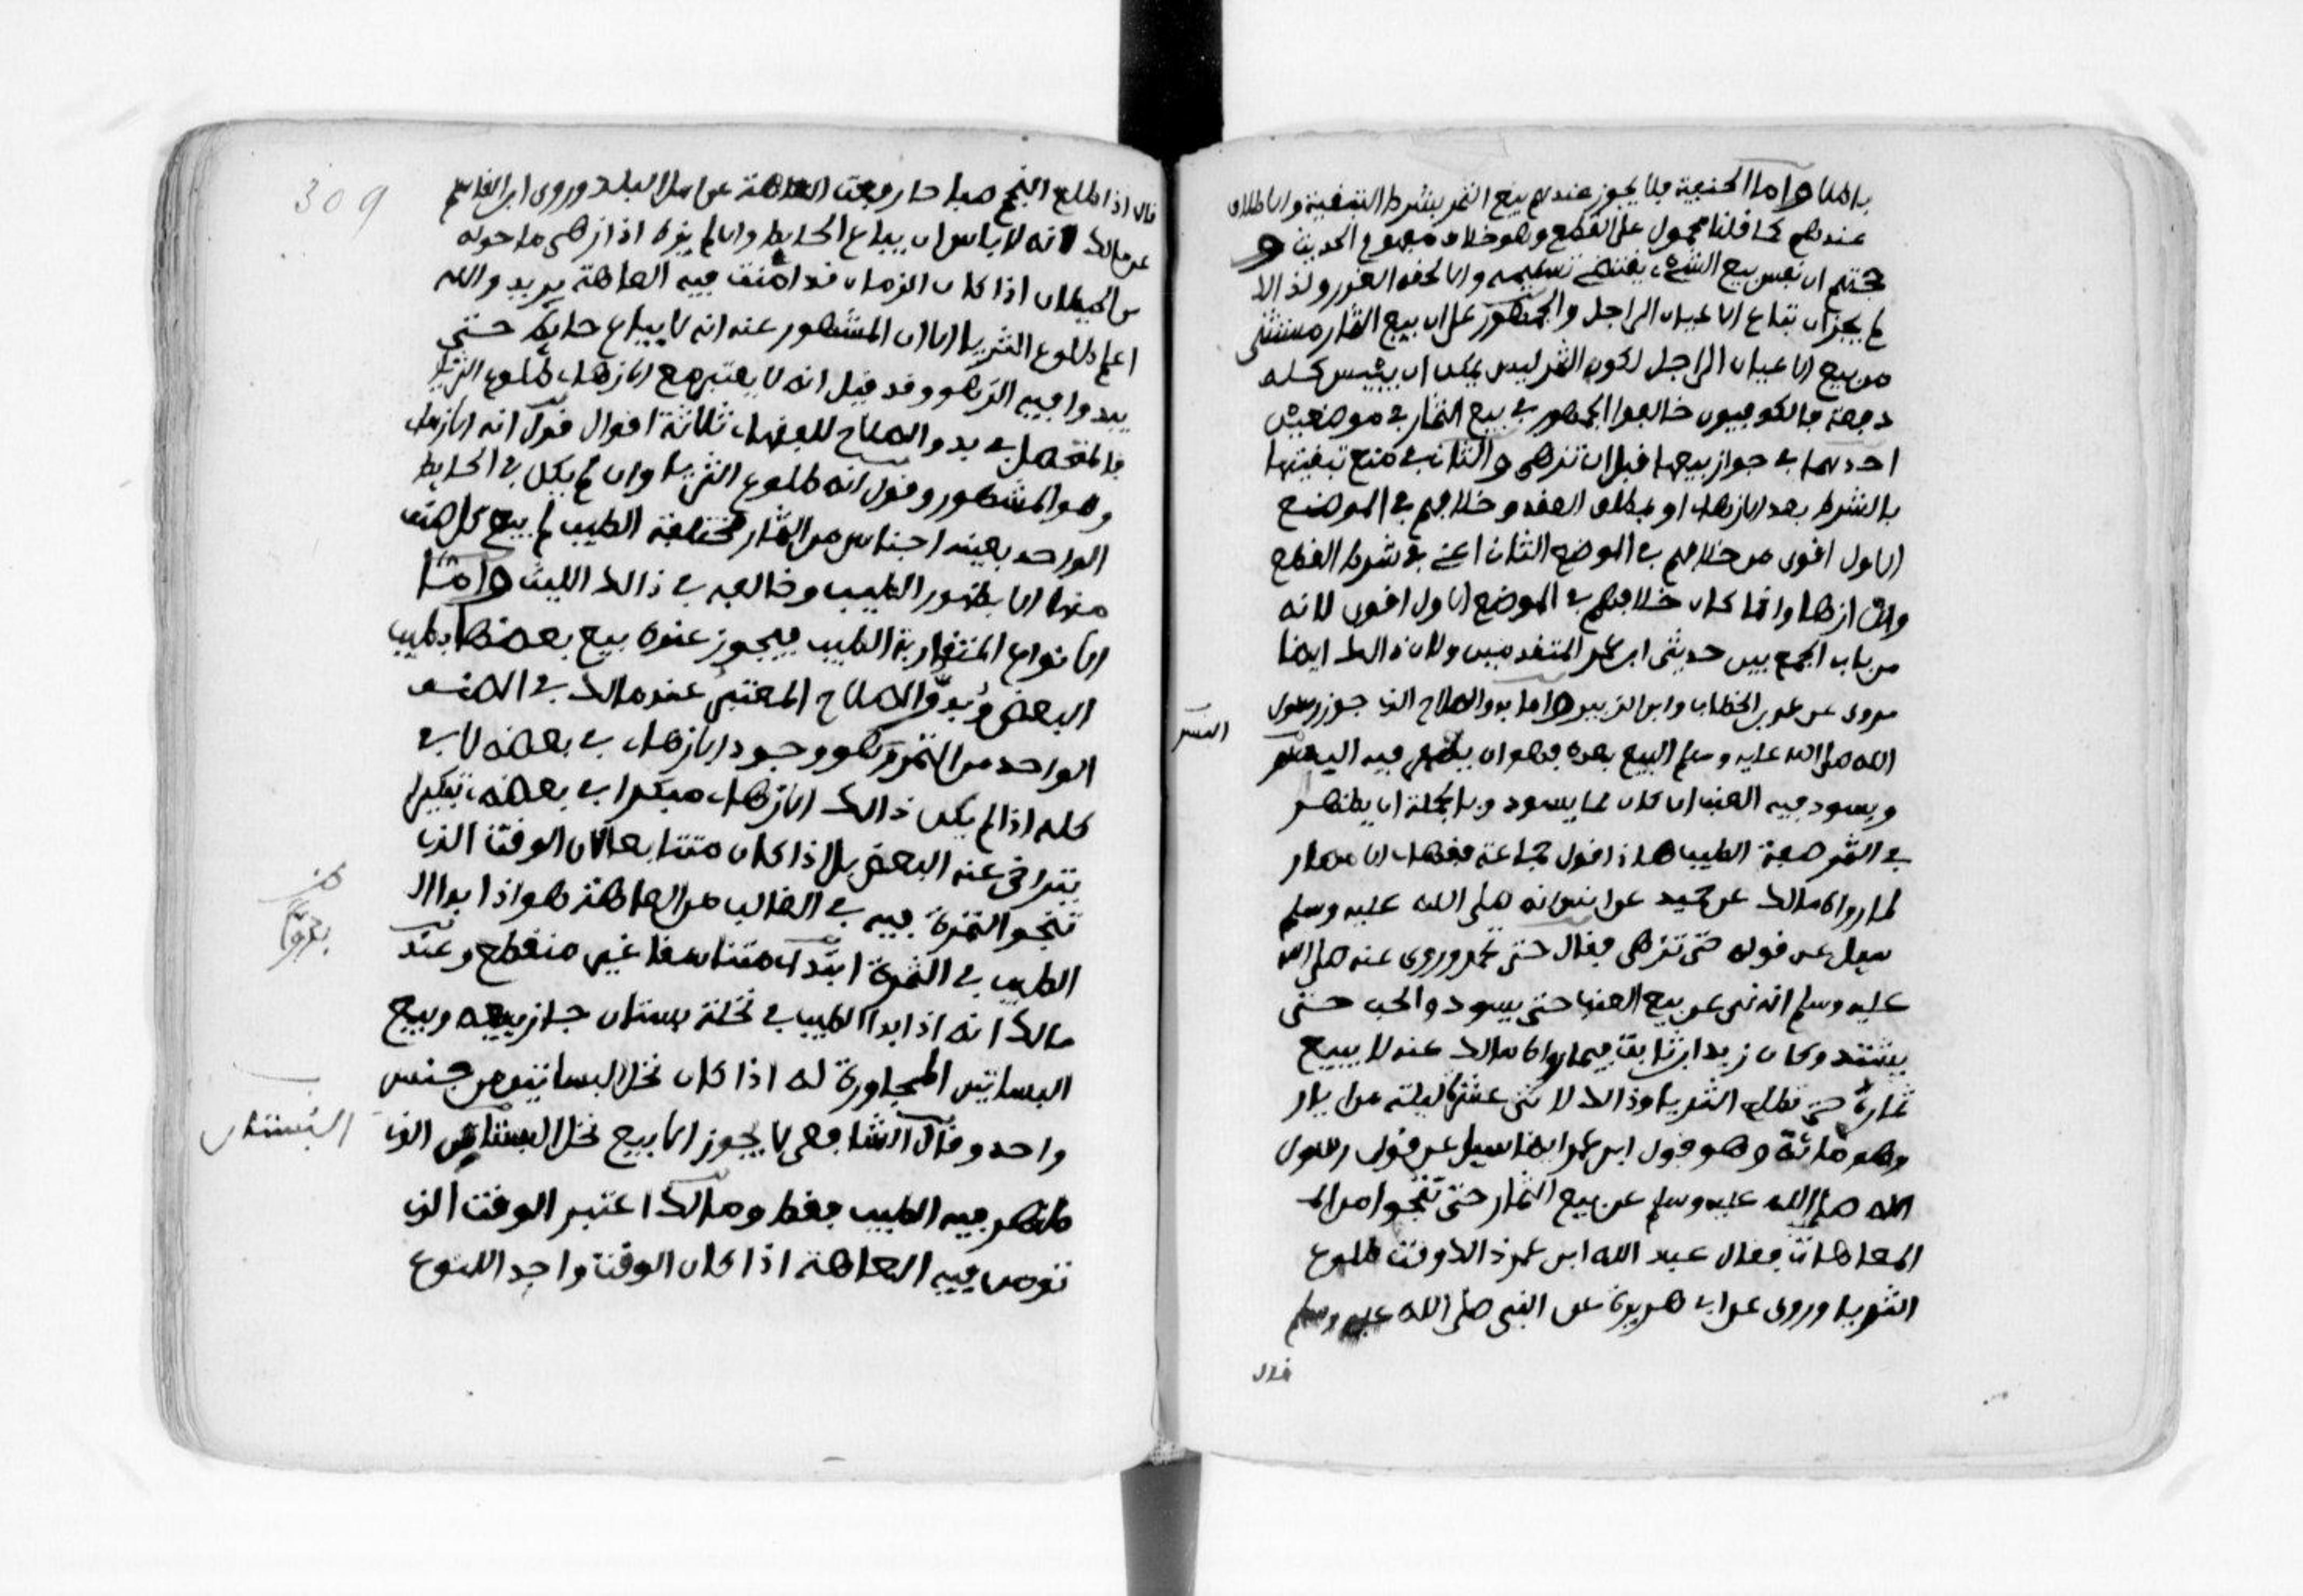 باطلا واما الحنفية فلا يجوز عندهم بيع الثمر بشرط التبقية والاطلاق
عندهم كما قلنا محمول على القطع وهو خلاف مفهوم الحديث و
حجتهم ان نفس بيع الشيء يقتضي تسليمه والا لحقه الغرر ولذالك
لم يجز ان تباع الاعيان الى اجل والجمهور على ان بيع الثمار مستثنى
من بيع الاعيان الى اجل لكون الثمر ليس يمكن ان ييبس كله
دفعة فالكوفيون خالفوا الجمهور في بيع الثمار في موضعين
احدهما في جواز بيعها قبل ان تزهى والثاني في منع تبقيتها
بالشرط بعد الازهاء او بمطلق العقد وخلافهم في الموضع
الاول اقوى من خلافهم في الموضع الثاني اعني في شرط القطع
وان ازها وانما كان خلافهم في الموضع الاول اقوى لانه
من باب الجمع بين حديثي ابن عمر المتقدمين ولان ذالك ايضا
مروى عن عمر بن الخطاب وابن الزبير واما بدو الصلاح الذي جوز رسول
الله صلى الله عليه وسلم البيع بعده فهو ان يظهر فيه اليصفر
البسر
ويسود فيه العنب ان كان مما يسود وبالجملة ان يظهر
في الثمر صفة الطيب هاذا قول جماعة فقهاء الامصار
لما رواه مالك عن حميد عن انس انه صلى الله عليه وسلم
سيل عن قوله حتى تزهى فقال حتى تحمر وروى عنه صلى الله
عليه وسلم انه نهى عن بيع العنب حتى يسود والحب حتى
يشتد وكان زيد ابن ثابت فيما رواه مالك عنه لا يبيع
ثماره حتى تطلع الثريا وذالك لاثنى عشرة ليلة من ايار
وهو مائة وهو قول ابن عمر ايضا سيل عن قول رسول
الله صلى الله عليه وسلم عن بيع الثمار حتى تنجوا من ال
العاهات فقال عبد الله ابن عمر ذالك وقت طلوع
الثريا وروى عن ابي هريرة عن النبي صلى الله عليه وسلم
قال
309
قال اذا طلع النجم صباحا رفعت العاهة عن اهل البلد وروى ابن القاسم
عن مالك انه لا باس ان يباع الحايط وان لم يزه اذا ازهى ما حوله
من الحيطان اذا كان الزمان قد امنت فيه العاهة يريد والله
اعلم طلوع الثريا الا ان المشهور عنه انه لا يباع حايط حتى
يبدوا فيه الزهو وقد قيل انه لا يعتبر مع الازهاء طلوع الثريا
فالمتحصل في بدو الصلاح للفقهاء ثلاثة اقوال قول انه الازهاء
وهو المشهور وقول انه طلوع الثريا وان لم يكن في الحايط
الواحد بعينه اجناس من الثمار مختلفة الطيب لم يبع كل صنف
منها الا بظهور الطيب وخالفه في ذالك الليث واما
الانواع المتقاربة الطيب فيجوز عنده بيع بعضها بطيب
البعض وبدو الصلاح المعتبر عند مالك في الصنف
الواحد من الثمر وهو وجود الازهاء في بعضه لا في
كله اذا لم يكن ذالك الازهاء مبكرا في بعضه تبكيرا
يتراخى عنه البعض بل اذا كان متتابعا لان الوقت الذي
تنجو الثمرة فيه في الغالب من العاهة هو اذا بدا ال
الطيب في الثمرة ابتداء متناسقا غير منقطع وعند
مالك انه اذا بدا الطيب في نخلة بستان جاز بيعه وبيع
البساتين المجاورة له اذا كان نخل البساتين من جنس
واحد وقال الشافعي لا يجوز الا بيع نخل البستان الذي
البستان
يظهر فيه الطيب فقط ومالك اعتبر الوقت الذي
تؤمن فيه العاهة اذا كان الوقت واحد للنوع